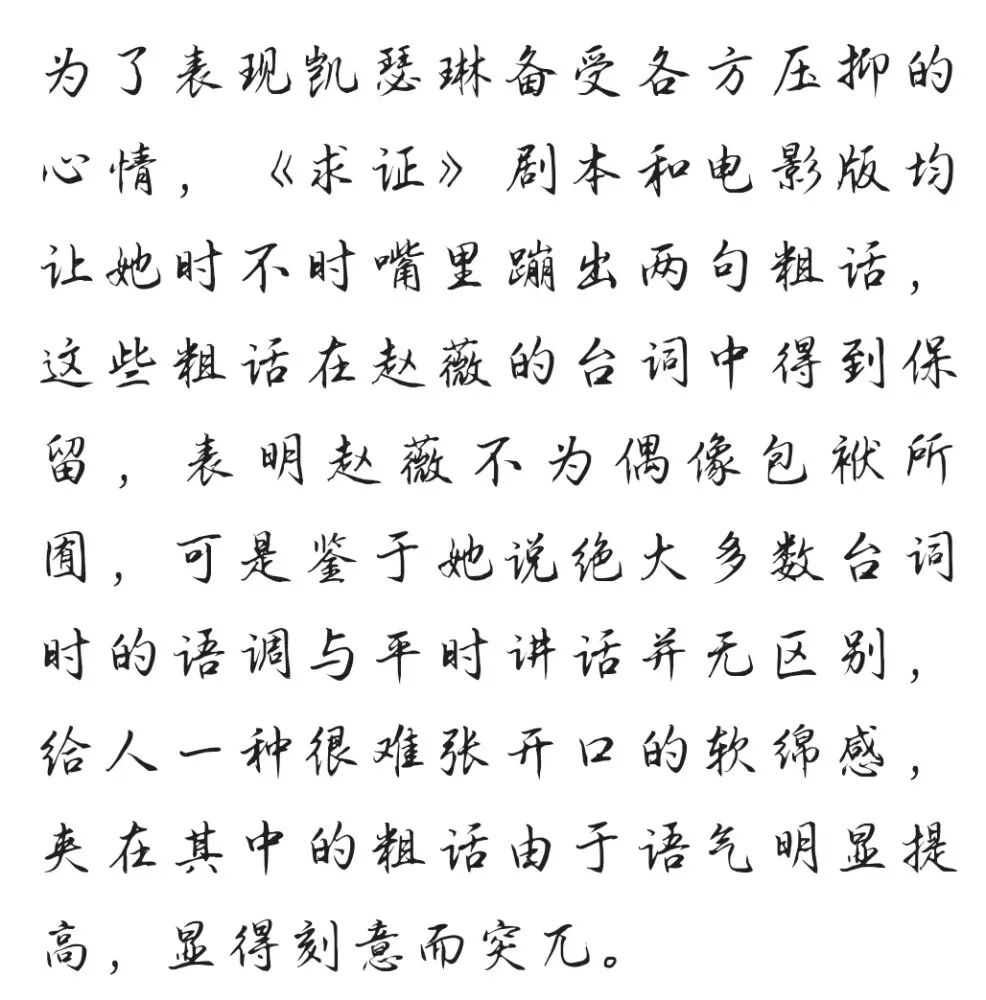 为了表现凯瑟琳备受各方压抑的
心情，《求证》剧本和电影版均
让她时不时嘴里蹦出两句粗话，
这些粗话在赵薇的台词中得到保
留，表明赵薇不为偶像包袱所
囿，可是鉴于她说绝大多数台词
时的语调与平时讲话并无区别，
给人一种很难张开口的软绵感，
夹在其中的粗话由于语气明显提
高，显得刻意而突兀。